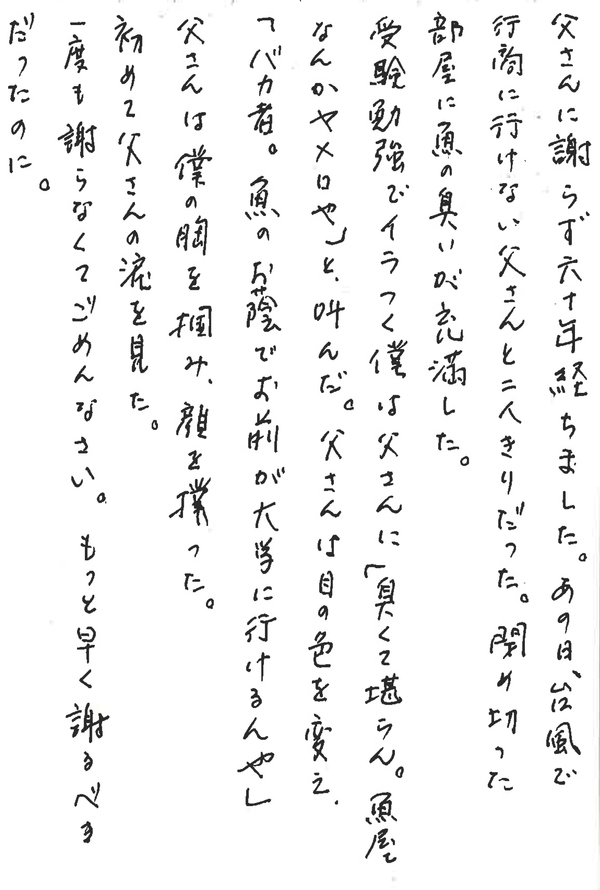 父さんに謝らず六十年経ちました。あの日、台風で
行商に行けない父さんと二人きりだった。閉め切った
部屋に魚の臭いが充満した。
受験勉強でイラつく僕は父さんに「臭くて堪らん。魚屋
なんかヤメロや」と、叫んだ。父さんは目の色を変え、
「バカ者。魚のお蔭でお前が大学に行けるんや」
父さんは僕の胸を掴み、顔を撲った。
初めて父さんの涙を見た。
一度も謝らなくてごめんなさい。もっと早く謝るべき
だったのに。